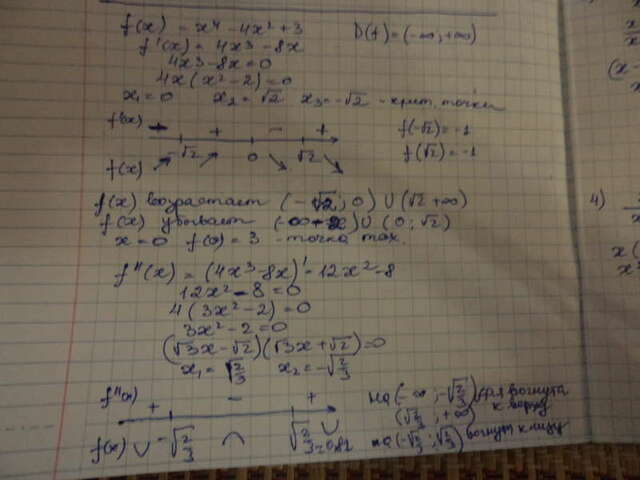 f(x) = x⁴ - 4x² + 3 D(f) = (-∞; +∞)
f'(x) = 4x3 - 8x
4x3 - 8x = 0
4x(x² - 2) = 0
x₁ = 0 x₂ = √2 x₃ = -√2 - крит. точки
f'(x) + - + f(-√2) = -1
-√2 0 √2 f(√2) = -1
f(x) ↗ ↗ ↘ ↘
f(x) возрастает (-√2; 0) ∪ (√2 +∞)
f(x) убывает ∪ (0; √2)
x = 0 f(0) = 3 - точка max.
f''(x) = (4x³ - 8x)' = 12x² - 8
12x² - 8 = 0
4(3x² - 2) = 0
3x² - 2 = 0
(√3x - √2)(√3x + √2) = 0
x₁ = √2/3 x₂ = -√2/3
f''(x) + - + на (-∞; -√2/3) вогнута
(√2/3; +∞) к
f(x) ∪ -√2/3 ∩ √2/3 ≈ 0,82 ∪ на (-√2/3; √2/3) вогнут книзу
4)